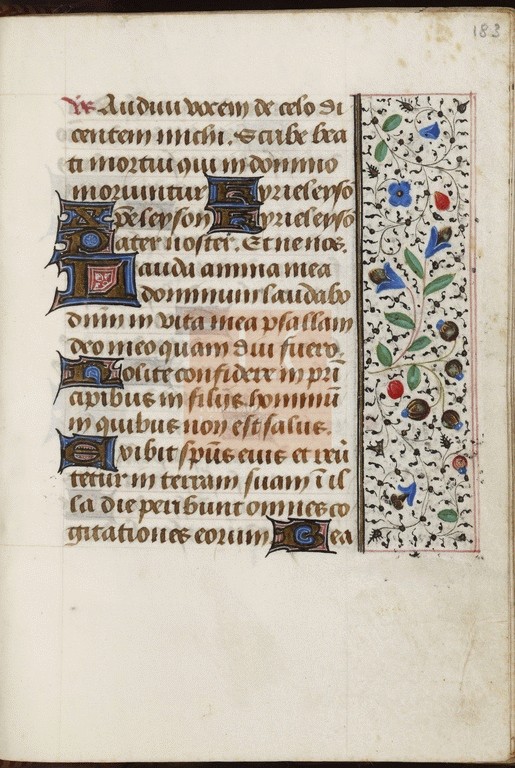 183
Audiui vocem de celo di
centem michi. Scribe bea
ti mortui qui in domino
moriuntur Kyrieleysō
Xp̄eleyson Kyrieleysō
Pater noster. Et ne nos.
Lauda anima mea
dominum laudabo
dn̄m in vita mea psallam
deo meo quam diu fuero.
Nolite confidere in prin̄
cipibus in filijs hominū
in quibus non est salus.
Exibit sp̄us eius et reū
tetur in terram suam ī il
la die peribunt omnes co
gitationes eorum Bea